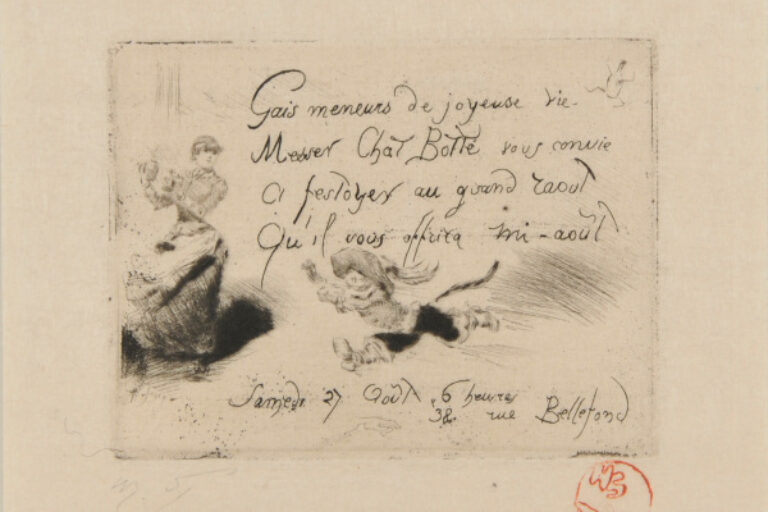 Gais meneurs de joyeuse vie.
Messer Chat Botté vous convie
A festoyer au grand raout
Qu'il vous offrira mi-août
Samedi 27 Août 6 heures
38. rue Bellefond